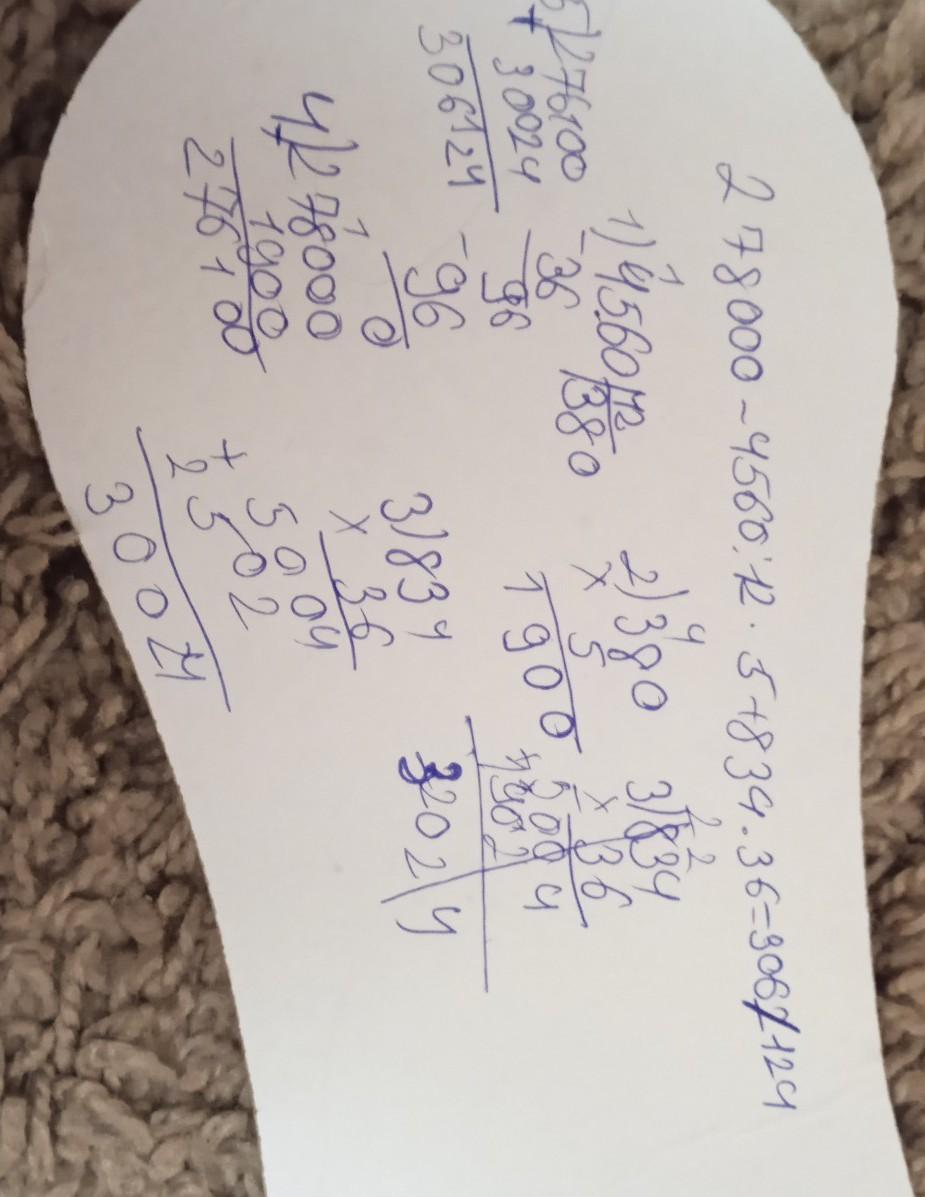 278000-4560:12·5+834·36=306124
1) 4560 12
380
-36
96
-96
0
2) 4
380
x 5
1900
3) 1 2
2
834
x 36
5004
+
3) 834
x 36
5004
+
2502
30024
4) 278000
1
1900
276100
5) 276100
+
30024
306124